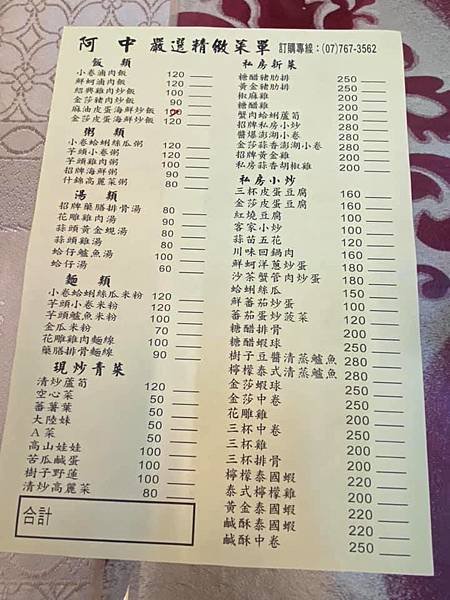 阿中 嚴選精緻菜單 訂購專線：(07)767-3562
飯類
小卷滷肉飯 120
鮮蚵滷肉飯 120
紹興雞肉炒飯 100
金莎豬肉炒飯 90
麻油皮蛋海鮮炒飯
金莎皮蛋海鮮炒飯 120
粥類
小卷蛤蜊絲瓜粥 120
芋頭小卷粥 120
芋頭雞肉粥 100
招牌海鮮粥 100
什錦高麗菜粥 80
湯類
招牌藥膳排骨湯 80
花雕雞肉湯 90
蒜頭黃金蜆湯 80
蒜頭雞湯 80
蛤仔鱸魚湯 100
蛤仔湯 60
麵類
小卷蛤蜊絲瓜米粉 120
芋頭小卷米粉 120
芋頭鱸魚米粉 100
金瓜米粉 70
花雕雞肉麵線 100
藥膳排骨麵線 90
現炒青菜
清炒蘆筍 120
空心菜 50
蕃薯葉 50
大陸妹 50
A菜 50
高山娃娃 100
苦瓜鹹蛋 100
樹子野蓮 100
清炒高麗菜 80
合計
私房新菜
糖醋豬肋排 250
黃金豬肋排 250
椒麻雞 200
糖醋雞 200
蟹肉蛤蜊蘆筍
招牌私房小炒
醬爆澎湖小卷
金莎蒜香澎湖小卷
招牌黃金雞
私房蒜香胡椒雞
私房小炒
三杯皮蛋豆腐 160
金莎皮蛋豆腐 160
紅燒豆腐
客家小炒
蒜苗五花
川味回鍋肉
鮮蚵洋蔥炒蛋
沙茶蟹管肉炒蛋
蛤蜊絲瓜
鮮蕃茄炒蛋
蕃茄蛋炒菠菜
糖醋排骨
糖醋蝦球
樹子豆醬清蒸鱸魚 280
檸檬泰式清蒸鱸魚 280
金莎蝦球 250
金莎中卷 250
花雕雞 250
三杯中卷 250
三杯雞 250
三杯排骨 250
檸檬泰國蝦 220
泰式檸檬雞 250
黃金泰國蝦 220
鹹酥泰國蝦 220
鹹酥中卷 250